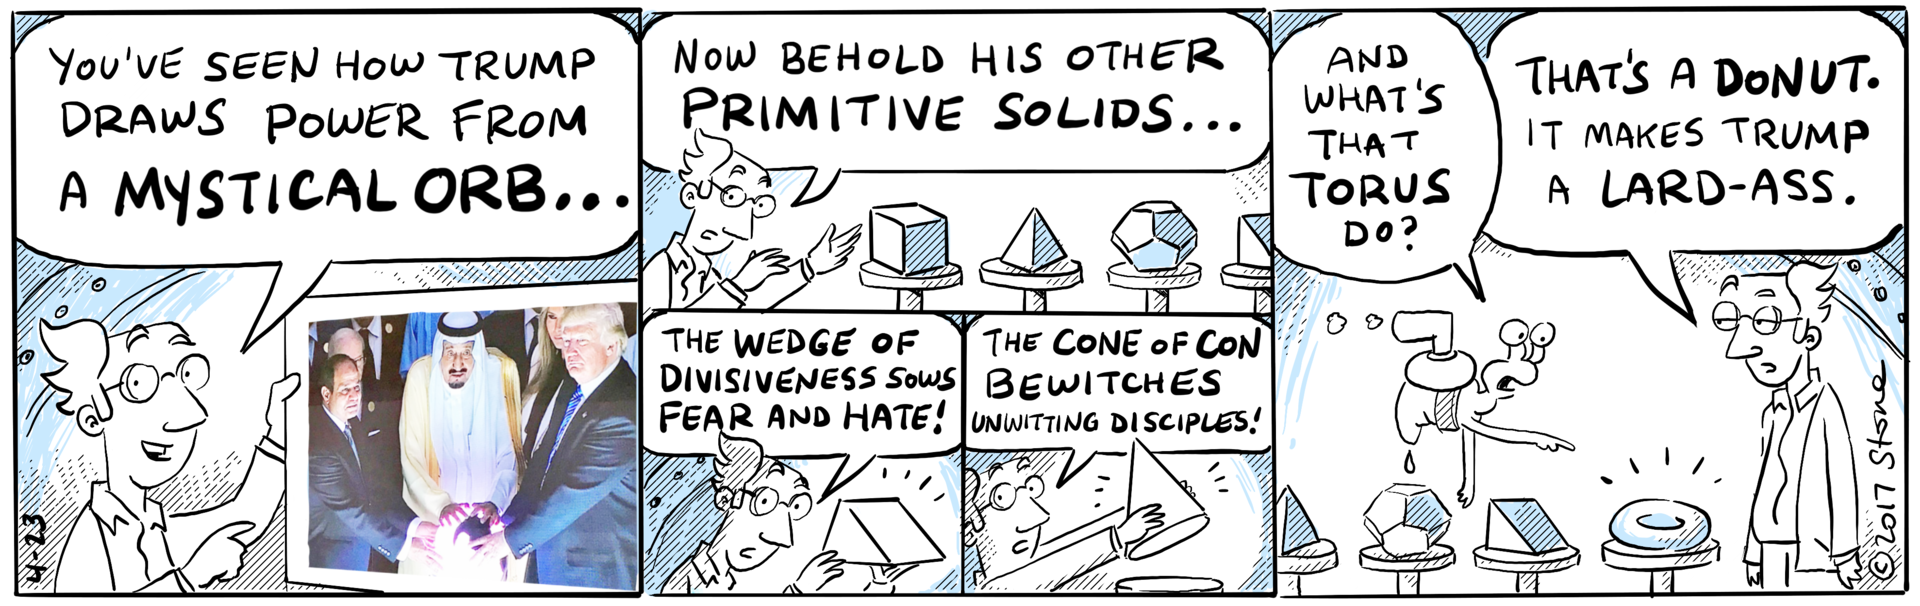 YOU'VE SEEN HOW TRUMP
DRAWS POWER FROM
A MYSTICAL ORB...
4-23
NOW BEHOLD HIS OTHER
PRIMITIVE SOLIDS...
THE WEDGE OF
DIVISIVENESS SOWS
FEAR AND HATE!
THE CONE OF CON
BEWITCHES
UNWITTING DISCIPLES!
AND
WHAT'S
THAT
TORUS
DO?
THAT'S A DONUT.
IT MAKES TRUMP
A LARD-ASS.
©2017 Stone